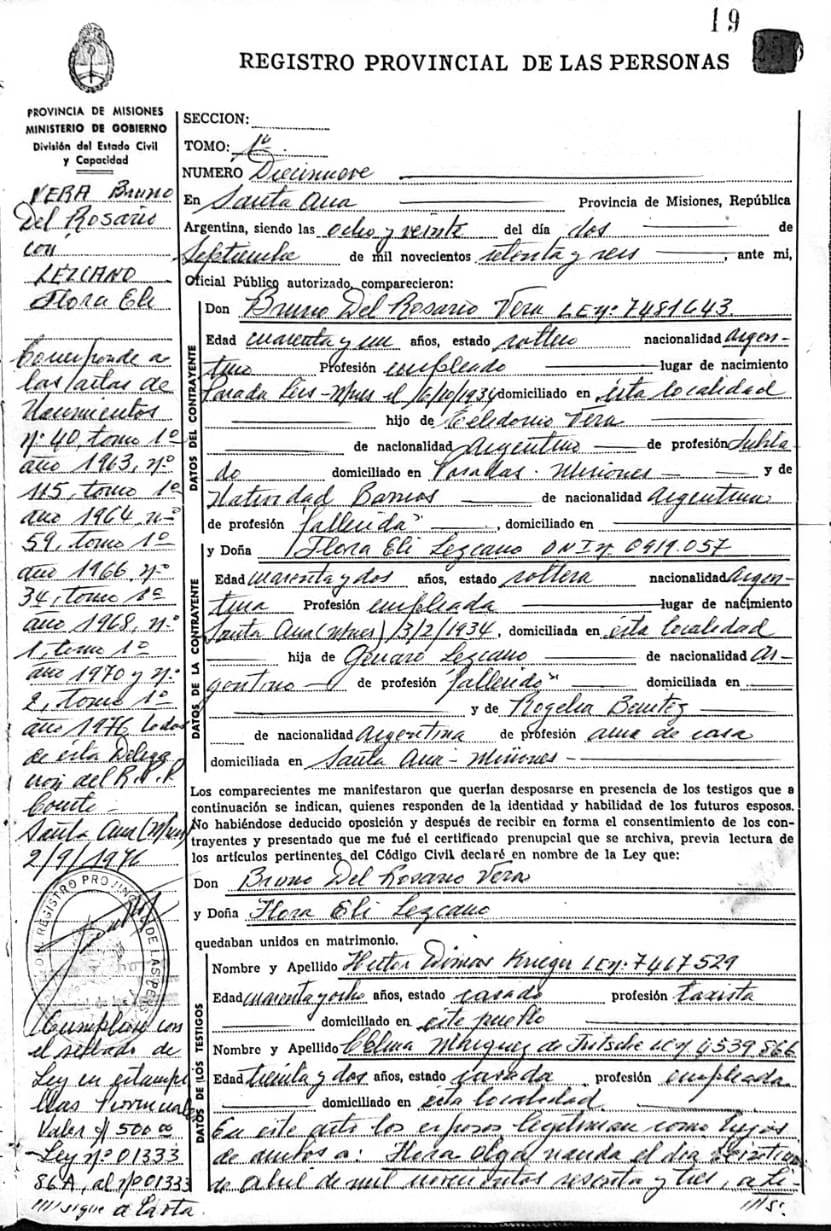 19
REGISTRO PROVINCIAL DE LAS PERSONAS
PROVINCIA DE MISIONES
MINISTERIO DE GOBIERNO
División del Estado Civil
y Capacidad
VERA Bruno
Del Rosario
con
LEZCANO
Flora Eli
Corresponde a
las actas de
Nacimientos
nº 40, tomo 1º
año 1963, nº
115, tomo 1º
año 1964, nº
59, tomo 1º
año 1966, nº
34, tomo 1º
año 1968, nº
1, tomo 1º
año 1970 y nº
2, tomo 1º
año 1976 todos
de esta Delega
ción del R.P.P.
Conste
Santa Ana (Mnes)
2/9/1976
Cumplióse con
el sellado de
Ley en estampi
llas Provinciales
Valor $ 500 00
Ley nº 01333
86A, al nº 01333
///sigue a la vta.
SECCION:
TOMO: 1º
NUMERO Diecinueve
En Santa Ana Provincia de Misiones, República
Argentina, siendo las ocho y veinte del día dos de
Septiembre de mil novecientos setenta y seis, ante mi,
Oficial Público autorizado, comparecieron:
DATOS DEL CONTRAYENTE
Don Bruno Del Rosario Vera L E nº 7481643
Edad cuarenta y un años, estado soltero nacionalidad argen-
tino Profesión empleado lugar de nacimiento
Parada Leis - Mnes el 6/10/1934 domiciliado en esta localidad
hijo de Celedonio Vera
de nacionalidad Argentino de profesión Jubila
do domiciliado en Posadas - Misiones y de
Natividad Barrios de nacionalidad argentina
de profesión "fallecida", domiciliado en
DATOS DE LA CONTRAYENTE
y Doña Flora Eli Lezcano D N I nº 0919.057
Edad cuarenta y dos años, estado soltera nacionalidad argen-
tina Profesión empleada lugar de nacimiento
Santa Ana (Mnes) 13/2/1934, domiciliada en esta localidad
hija de Genaro Lezcano de nacionalidad Ar-
gentino de profesión "fallecido" domiciliada en
y de Rogelia Benitez
de nacionalidad Argentina de profesión ama de casa
domiciliada en Santa Ana - Misiones
Los comparecientes me manifestaron que querían desposarse en presencia de los testigos que a
continuación se indican, quienes responden de la identidad y habilidad de los futuros esposos.
No habiéndose deducido oposición y después de recibir en forma el consentimiento de los con-
trayentes y presentado que me fué el certificado prenupcial que se archiva, previa lectura de
los artículos pertinentes del Código Civil declaré en nombre de la Ley que:
Don Bruno Del Rosario Vera
y Doña Flora Eli Lezcano
quedaban unidos en matrimonio.
DATOS DE LOS TESTIGOS
Nombre y Apellido Hector Dimas Krieger L E nº 7467529
Edad cuarenta y ocho años, estado casado profesión taxista
domiciliado en este pueblo
Nombre y Apellido Celma Marquez de Fritsche LC nº 4539866
Edad treinta y dos años, estado casada profesión empleada
domiciliado en esta localidad
En este acto los esposos legitiman como hijos
de ambos a: Flora Olga nacida el dia veintiuno
de abril de mil novecientos sesenta y tres, a Li-
///si.